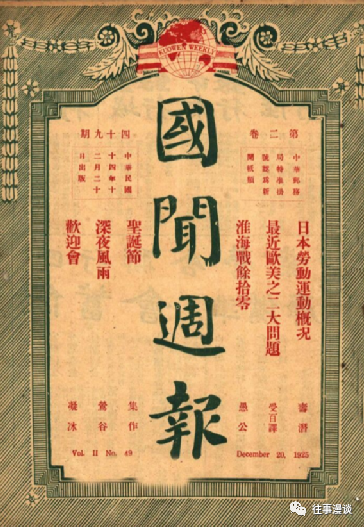 KUOWEN WEEKLY
國聞週報
第二卷
四十九期
中華郵務
局特准掛
號認為新
聞紙類
中華民國
十四年十
二月二十
日出版
日本勞動運動概況
最近歐美之二大問題 受百譯
淮海戰餘拾零 愚公
聖誕節 集作
深夜風雨 鶯谷
歡迎會 凝冰
December 20, 1925
Vol. II No. 49
往事漫谈